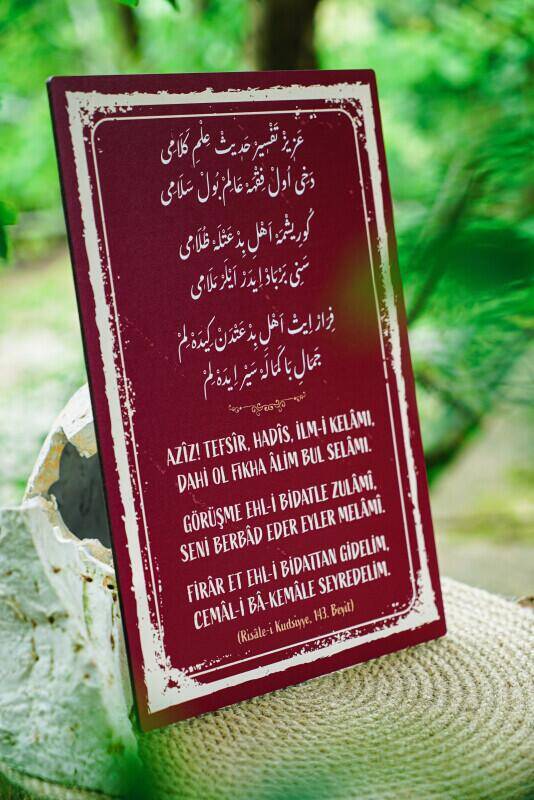 عَزِيزْ تَفْسِيرْ حَدِيثْ عِلْمِ كَلَامِى
دَخِى اُولْ فِقْهَه عَالِمْ بُولْ سَلَامِى
كُورِيشْمَه اَهْلِ بِدْعَتْلَه ظُلَامِى
سَنِى بَرْبَادْ اِيدَرْ اَيْلَرْ مَلَامِى
فِرَارْ اِيتْ اَهْلِ بِدْعَتْدَنْ كِيدَه لِمْ
جَمَالِ بَا كَمَالَه سَيْر اِيدَه لِمْ
AZÎZ! TEFSÎR, HADÎS, İLM-İ KELÂMI,
DAHİ OL FIKHA ÂLİM BUL SELÂMI.
GÖRÜŞME EHL-İ BİDATLE ZULÂMÎ,
SENİ BERBÂD EDER EYLER MELÂMÎ.
FİRÂR ET EHL-İ BİDATTAN GİDELİM,
CEMÂL-İ BÂ-KEMÂLE SEYREDELİM.
(Risâle-i Kudsiyye, 143. Beyit)